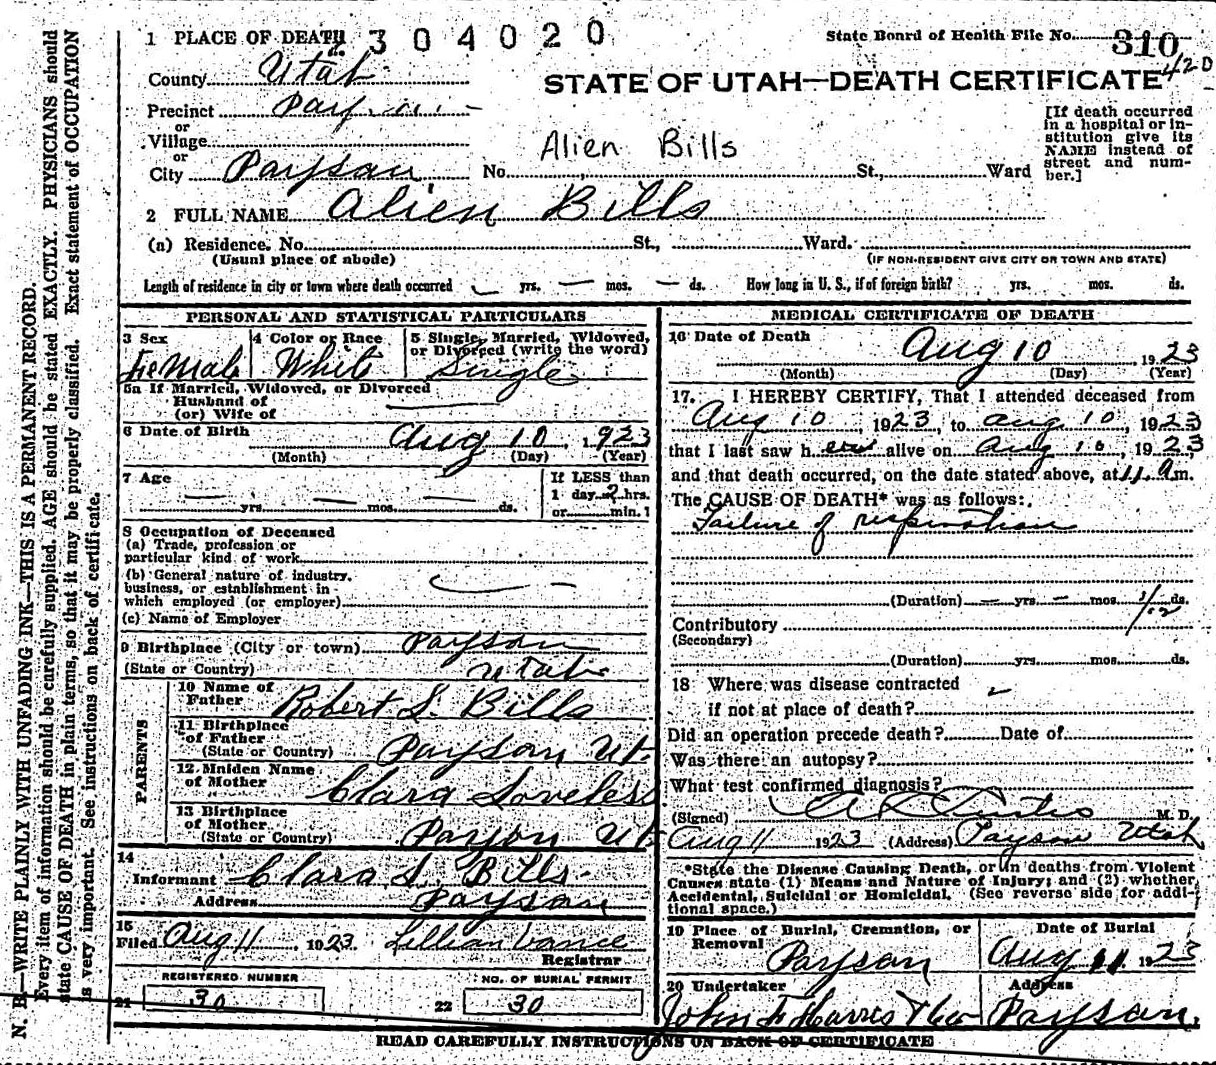 1 PLACE OF DEATH 2304020
State Board of Health File No. 310
County Utah
STATE OF UTAH—DEATH CERTIFICATE 420
Precinct Payson
or
Village
or
City Payson No. St., Ward
Alien Bills
[If death occurred
in a hospital or in-
stitution give its
NAME instead of
street and num-
ber.]
2 FULL NAME Alien Bills
(a) Residence. No. St., Ward.
(Usual place of abode) (IF NON-RESIDENT GIVE CITY OR TOWN AND STATE)
Length of residence in city or town where death occurred — yrs. — mos. — ds. How long in U. S., if of foreign birth? yrs. mos. ds.
PERSONAL AND STATISTICAL PARTICULARS
3 Sex
FeMale
4 Color or Race
White
5 Single, Married, Widowed,
or Divorced (write the word)
Single
5a If Married, Widowed, or Divorced
Husband of
(or) Wife of —
6 Date of Birth Aug 10, 1923
(Month) (Day) (Year)
7 Age
— yrs. — mos. — ds.
If LESS than
1 day 2 hrs.
or min.
8 Occupation of Deceased
(a) Trade, profession or
particular kind of work
(b) General nature of industry,
business, or establishment in
which employed (or employer)
(c) Name of Employer
9 Birthplace (City or town) Payson
(State or Country) Utah
PARENTS
10 Name of
Father Robert S. Bills
11 Birthplace
of Father
(State or Country) Payson Ut.
12 Maiden Name
of Mother Clara Loveless
13 Birthplace
of Mother
(State or Country) Payson Ut
14
Informant Clara L. Bills
Address Payson
15
Filed Aug 11, 1923. Lillian Vance
Registrar
REGISTERED NUMBER
21 30
NO. OF BURIAL PERMIT
22 30
MEDICAL CERTIFICATE OF DEATH
16 Date of Death Aug 10, 1923
(Month) (Day) (Year)
17. I HEREBY CERTIFY, That I attended deceased from
Aug 10, 1923, to Aug 10, 1923
that I last saw her alive on Aug 10, 1923,
and that death occurred, on the date stated above, at 11 a m.
The CAUSE OF DEATH* was as follows:
Failure of respiration
(Duration) — yrs. — mos. 1/12 ds.
Contributory
(Secondary)
(Duration) yrs. mos. ds.
18 Where was disease contracted
if not at place of death?
Did an operation precede death? Date of
Was there an autopsy?
What test confirmed diagnosis?
(Signed) M. D.
Aug 11 1923 (Address) Payson Utah
*State the Disease Causing Death, or in deaths from Violent
Causes state (1) Means and Nature of Injury; and (2) whether
Accidental, Suicidal or Homicidal. (See reverse side for addi-
tional space.)
19 Place of Burial, Cremation, or
Removal
Payson
Date of Burial
Aug 11, 1923
20 Undertaker
John F Harris & Co
Address
Payson.
READ CAREFULLY INSTRUCTIONS ON BACK OF CERTIFICATE
N. B.—WRITE PLAINLY WITH UNFADING INK—THIS IS A PERMANENT RECORD.
Every item of information should be carefully supplied. AGE should be stated EXACTLY. PHYSICIANS should
state CAUSE OF DEATH in plain terms, so that it may be properly classified. Exact statement of OCCUPATION
is very important. See instructions on back of certificate.